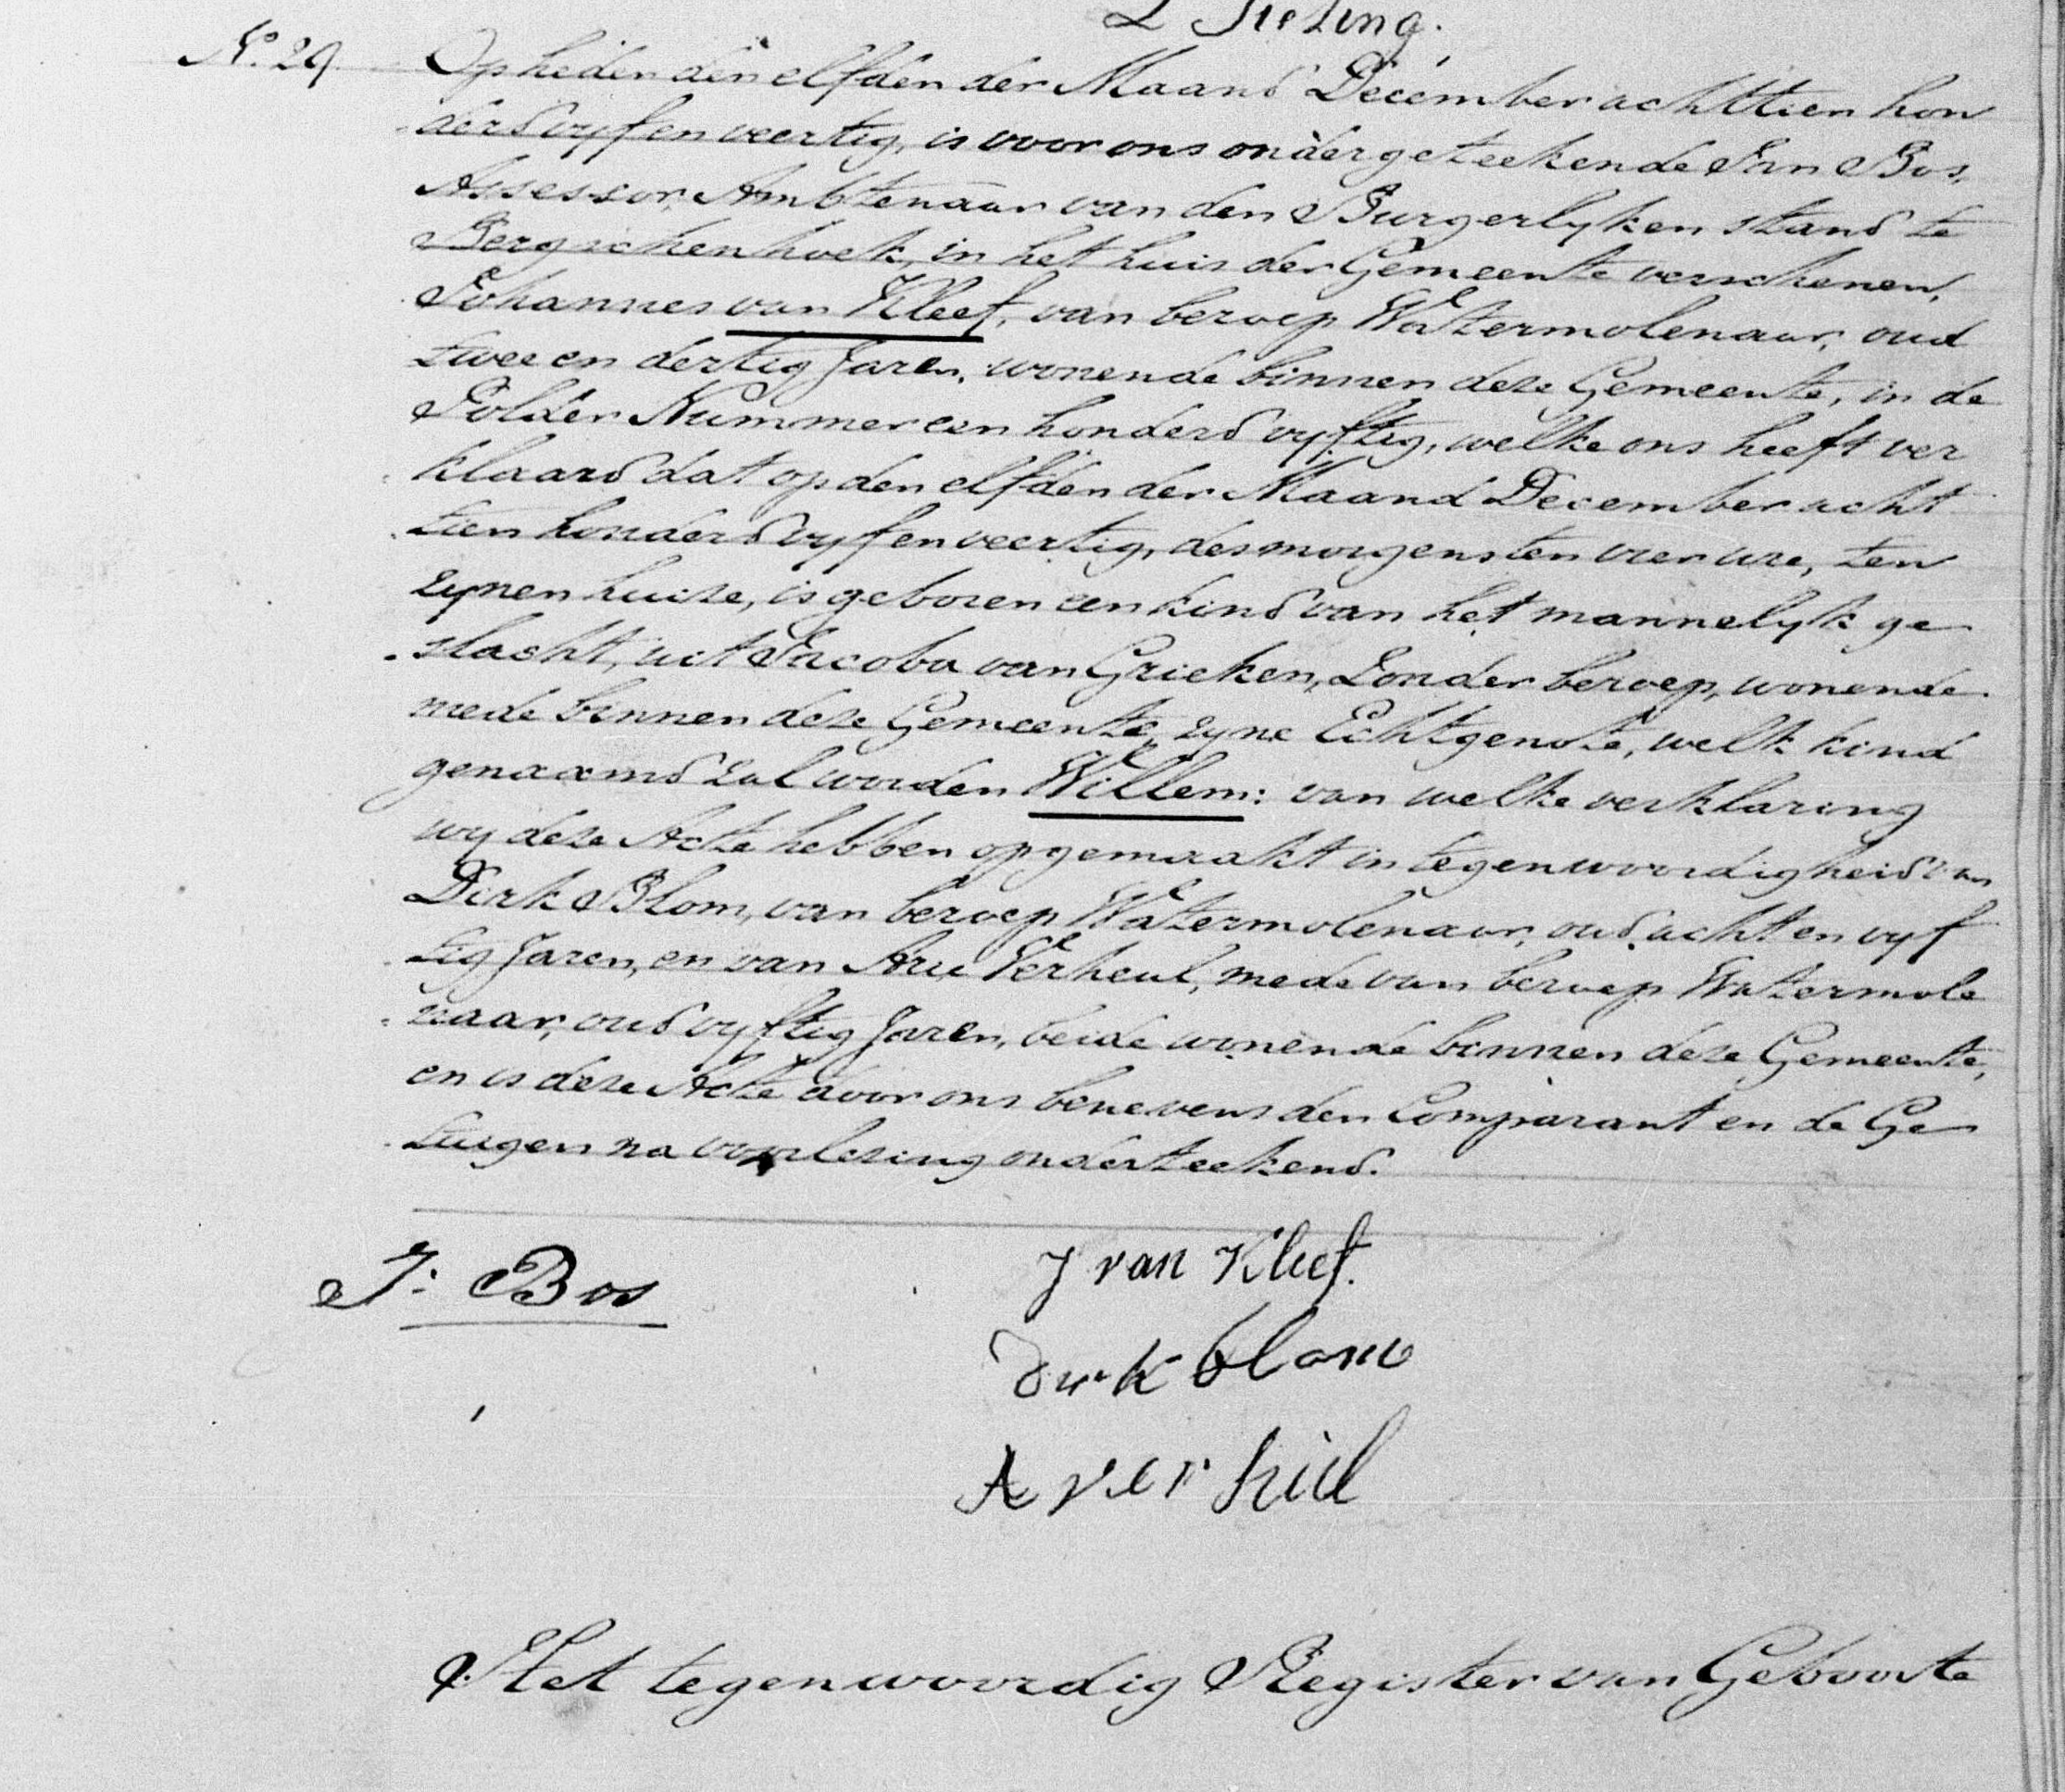 N°. 29
Op heden den elfden der Maand December achttien hon
derd vyf en veertig, is voor ons ondergeteekende Jan Bos,
Assessor, Ambtenaar van den Burgerlyken stand te
Bergschenhoek, in het huis der Gemeente verschenen,
Johannes van Kleef, van beroep Watermolenaar, oud
twee en dertig Jaren, wonende binnen deze Gemeente, in de
Polder Nummer een honderd vyftig, welke ons heeft ver
klaard dat op den elfden der Maand December acht
tien honderd vyf en veertig, des morgens ten vier ure, ten
zynen huize, is geboren een kind van het mannelyk ge
slacht, uit Jacoba van Grieken, Zonder beroep, wonende
mede binnen deze Gemeente, zyne Echtgenote, welk kind
genaamd zal worden Willem: van welke verklaring
wy deze Acte hebben opgemaakt in tegenwoordigheid van
Dirk Blom, van beroep Watermolenaar, oud acht en vyf
tig Jaren, en van Arie Verheul, mede van beroep Watermole
naar, oud vyftig Jaren, beide wonende binnen deze Gemeente,
en is deze Acte door ons benevens den Comparant en de Ge
tuigen na voorlezing onderteekend.
J: Bos
J van Kleef.
Dirk blom
A verhul
Het tegenwoordig Register van Geboorte